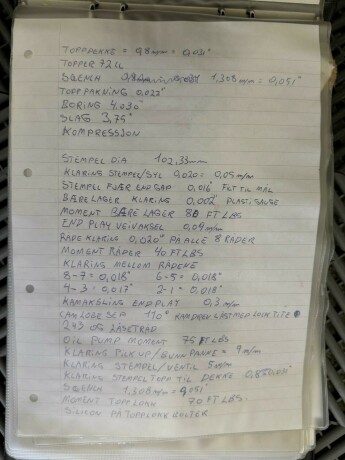 TOPPDEKKE = 0,8m/m = 0,031"
TOPPER 72 cc
SQENCH 1,308 m/m = 0,051"
TOPPAKNING 0,022"
BORING 4,030"
SLAG 3,75"
KOMPRESSJON
STEMPEL DIA 102,33mm
KLARING STEMPEL/SYL 0,020 = 0,05 m/m
STEMPEL FJÆR ENDGAP 0,016" FILT TIL MÅL
BÆRELAGER KLARING 0,002" PLASTIGAUGE
MOMENT BÆRE LAGER 80 FT LBS
END PLAY VEIVAKSEL 0,09 m/m
RADE KLARING 0,020" PÅ ALLE 8 RÅDER
MOMENT RÅDER 40 FT LBS
KLARING MELLOM RÅDENE
8-7 = 0,018" 6-5 = 0,018"
4-3 = 0,017" 2-1 = 0,018"
KAMAKSLING END PLAY 0,3 m/m
CAM LOBE SEP 110° KAMDREV LÅST MED LOCK TITE
243 OG LÅSETRÅD
OIL PUMP MOMENT 75 FT LBS
KLARING PICK UP/BUNNPANNE = 9 m/m
KLARING STEMPEL/VENTIL 5 m/m
KLARING STEMPELTOPP TIL DEKKE
SQENCH 1,308 m/m = 0,051"
MOMENT TOPPLOKK 70 FT LBS
SILICON PÅ TOPPLOKK BOLTER